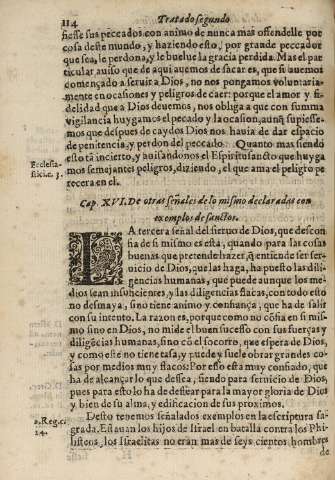 114 Tratado segundo
fiesse sus peccados con animo de nunca mas offendelle por
cosa deste mundo, y haziendo esto, por grande peccador
que sea, le perdona, y le buelue la gracia perdida. Mas el par
ticular auiso que de aqui auemos de sacar es, que si auemos
començado a seruir a Dios, no nos pongamos voluntaria-
mente en ocasiones y peligros de caer: porque el amor y fi-
delidad que a Dios deuemos, nos obliga a que con summa
vigilancia huygamos el pecado y la ocasion, aunq̃ supiesse-
mos que despues de caydos Dios nos hauia de dar espacio
de penitencia, y perdon del peccado. Quanto mas siendo
Ecclesia-
stici. c. 3.
esto tã incierto, y auisandonos el Espiritu sancto que huyga
mos semejantes peligros, diziendo, el que ama el peligro pe
recera en el.
Cap. XVI. De otras señales de lo mismo declaradas con
exemplos de sanctos.
LA tercera señal del sieruo de Dios, que descon
fia de si mismo es esta, quando para las cosas
buenas que pretende hazer, q̃ entiende ser ser-
uicio de Dios, que las haga, ha puesto las dili-
gencias humanas, que puede aunque los me-
dios sean insuficientes, y las diligencias flacas, con todo esto
no desmaya, sino tiene animo y confiança, que ha de salir
con su intento. La razon es, porque como no cõfia en si mis-
mo sino en Dios, no mide el buen sucesso con sus fuerças y
diligẽcias humanas, sino cõ el socorro, que espera de Dios,
y como este no tiene tasa, y puede y suele obrar grandes co-
sas por medios muy flacos: Por esso esta muy confiado, que
ha de alcançar lo que dessea, siendo para seruicio de Dios,
pues para esto lo ha de dessear para la mayor gloria de Dios
y bien de su alma, y edificacion de sus proximos.
Desto tenemos señalados exemplos en la escriptura sa-
2. Reg. c.
14.
grada. Estauan los hijos de Israel en batalla contra los Phi-
listeos, los Israelitas no eran mas de seyscientos hombres
de